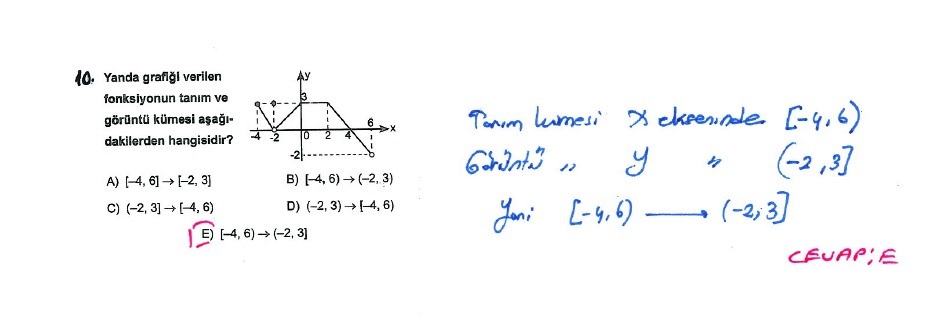 10. Yanda grafiği verilen
fonksiyonun tanım ve
görüntü kümesi aşağı-
dakilerden hangisidir?
y
3
-4 -2 0 2 4 6 x
-2
A) [-4, 6] → [-2, 3]
B) [-4, 6) → (-2, 3)
C) (-2, 3] → [-4, 6)
D) (-2, 3) → [-4, 6)
E) [-4, 6) → (-2, 3]
Tanım kumesi X ekseninde [-4,6)
Görüntü " y " (-2,3]
Yani [-4,6) → (-2,3]
CEVAP: E